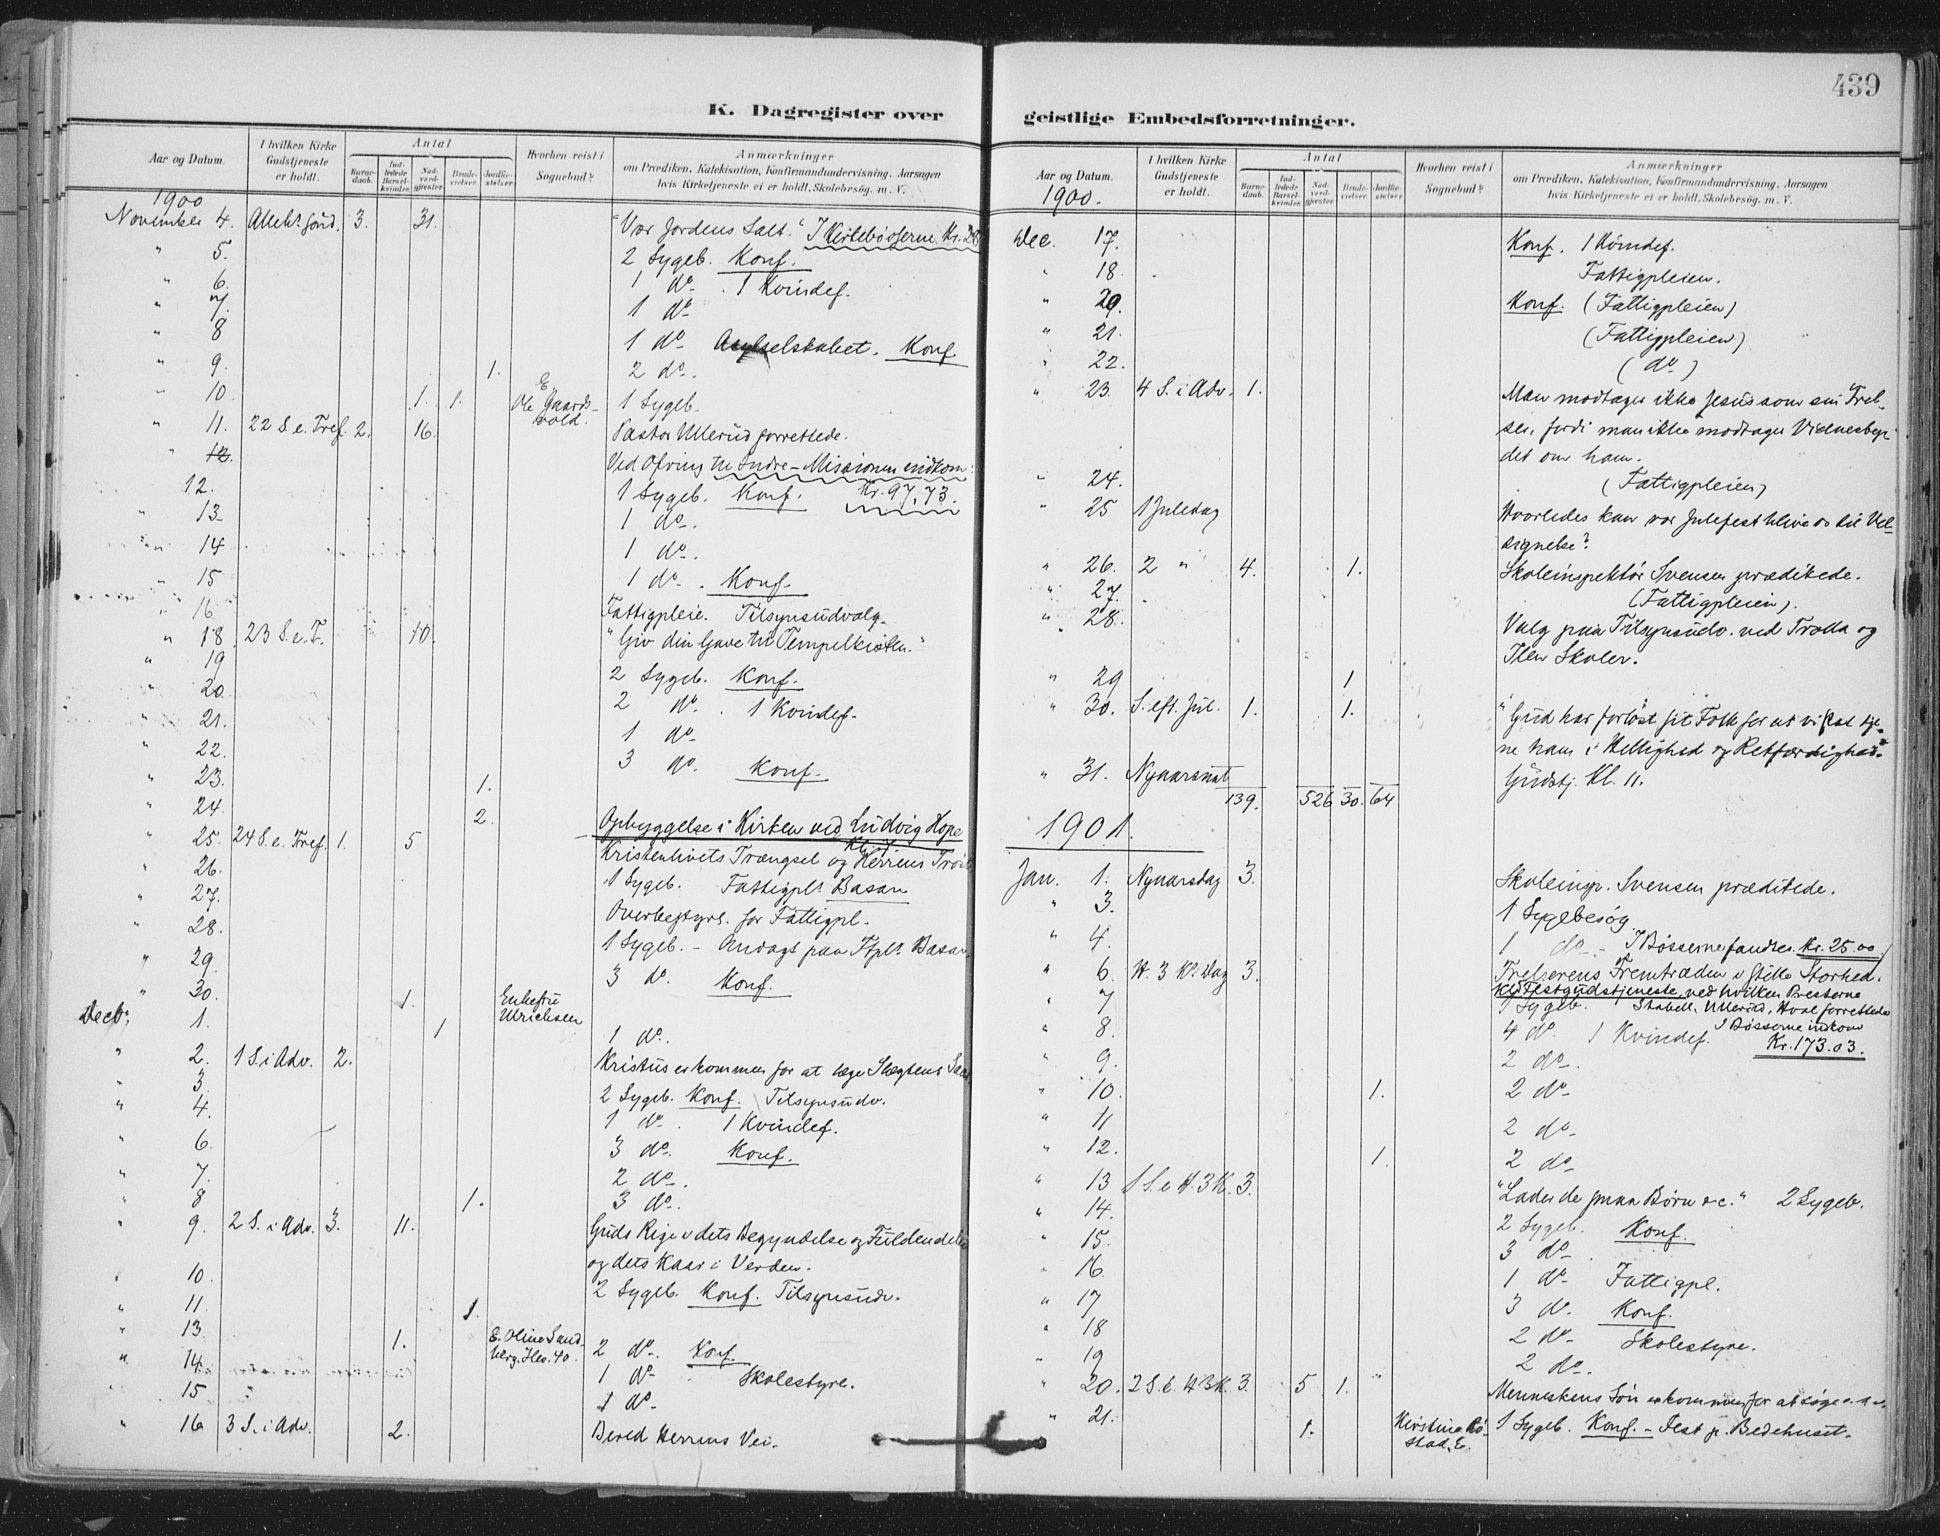 439
K. Dagregister over geistlige Embedsforretninger.
Aar og Datum. I hvilken Kirke Gudstjeneste er holdt. Antal Barnedaab. Indledede Barselkvinder. Nadverdgjester Brudevielser. Jordfæstelser. Hvorhen reist i Sognebud? Anmærkninger om Prædiken, Katekisation, Konfirmandundervisning, Aarsagen hvis Kirketjeneste ei er holdt, Skolebesøg. m. V.
1900
November 4. 3. 31. "Vor Jordens Salt." I Kirkebøsserne Kr. 28
" 5. 2 Sygeb. Konf.
" 6. 1 do . 1 Kvindef.
" 7. 1 do
" 8 1 do Konf
" 9. 1. 2 do.
" 10. 1. 1. E. Ole Gaardsvold. 1 Sygeb.
" 11. 22 S. e. Tref. 2. 16. Pastor Ullerud forrettede.
" 12. Ved Ofring til Indre-Missionen indkom
12. 1 Sygeb. Konf. Kr. 97,73.
" 13 1 do.
" 14 1 do.
" 15 1 do. Konf.
" 16 Fattigpleie. Tilsynsudvalg.
" 18 23 S. e. T. 10. "Giv din Gave til Tempelkisten."
" 19 2 Sygeb. Konf.
" 20. 2 do. . 1 Kvindef.
" 21. 1 do
" 22. 3 do. Konf.
" 23. 1.
" 24. 2. Opbyggelse i Kirken ved Ludvig Hope
" 25. 24 S. e. Tref. 1. 5 Kristenlivets Trængsel og Herrens Trøst
" 26. 1 Sygeb. Fattigpl. Basar
" 27. Overbestyrs. for Fattigpl.
" 28. 1 Sygeb. - Andagt paa Ffpl. Basar
" 29. 3 do. Konf.
" 30. 1. Enkefru Ulrichsen
Decb. 1. 1 1 do.
" 2. 1 S. i Adv. 2. Kristus er kommen for at læge Slægtens
" 3. 2 Sygeb. Konf. Tilsynsudv.
" 4. 1 do. 1 Kvindef.
" 6. 3 do. Konf.
" 7. 2 do.
" 8 1. 3 do.
" 9. 2 S. i Adv. 3. 11. Guds Rige i dets Begyndelse og Fuldendelse
og dets Kaar i Verden.
" 10. 2 Sygeb. Konf. Tilsynsudv.
" 11. 1.
" 13. 1. E. Oline Sandberg. Ilev. 40. 2 do. Konf.
" 14. 1 do Skolestyre.
" 15 1 do.
" 16 3 S. i Adv. 2. Bered Herrens Vei.
Aar og Datum. I hvilken Kirke Gudstjeneste er holdt. Antal Barnedaab. Indledede Barselkvinder. Nadverdgjester Brudevielser. Jordfæstelser. Hvorhen reist i Sognebud? Anmærkninger om Prædiken, Katekisation, Konfirmandundervisning, Aarsagen hvis Kirketjeneste ei er holdt, Skolebesøg. m. V.
1900.
Dec. 17. Konf. 1 Kvindef.
" 18. Fattigpleien.
" 20. Konf. (Fattigpleien)
" 21. (Fattigpleien)
" 22. (do)
" 23. 4 S. i Adv. 1. Man modtager ikke Jesus som sin Frelser, fordi man ikke modtager Vidnesbyrdet om ham.
" 24. (Fattigpleien)
" 25 1 Juledag Hvorledes kan vor Julefest blive os til Velsignelse?
" 26. 2 " 4. 1. Skoleinspektør Svensen prædikede.
" 27. (Fattigpleien).
" 28. Valg paa Tilsynsudv. ved Trolla og
Ilen Skoler.
" 29 1
" 30. S. eft. Jul. 1. 1. "Gud har forløst sit Folk for at vi skal tjene ham i Hellighed og Retfærdighed."
" 31. Nyaarsnat Gudstj. Kl. 11.
139. 526 30. 64
1901.
Jan. 1. Nyaarsdag 3. Skoleinsp. Svensen prædikede.
" 3. 1 Sygebesøg
" 4. 1 do - I Bøsserne fandtes Kr. 25.00
" 6. H. 3 K. Dag 3. Frelserens Fremtræden i stille Storhed.
Festgudstjeneste, ved hvilken Presterne
" 7 1 Sygeb. Stabell, Ullerud, Hval forrettede
" 8. 4 do. 1 Kvindef. I Bøsserne indkom
" 9. 2 do. Kr. 173.03.
" 10. 1. 2 do
" 11 2 do
" 12. 1. 2 do
" 13 1 S. e H. 3 K. 3. "Lader de smaa Børn &c." 2 Sygeb.
" 14. 2 Sygeb. Konf.
" 15. 3 do
" 16 1 do Fattigpl.
" 17 3 do. Konf.
" 18 2 do Skolestyre.
" 19 2 do.
" 20. 2 S. e. H 3 K. 3. 5 1. Menneskens Søn er kommen for at søge
" 21. 1. Kirstine Røstad, E. 1 Sygeb. Konf. - Fest p. Bedehuset.